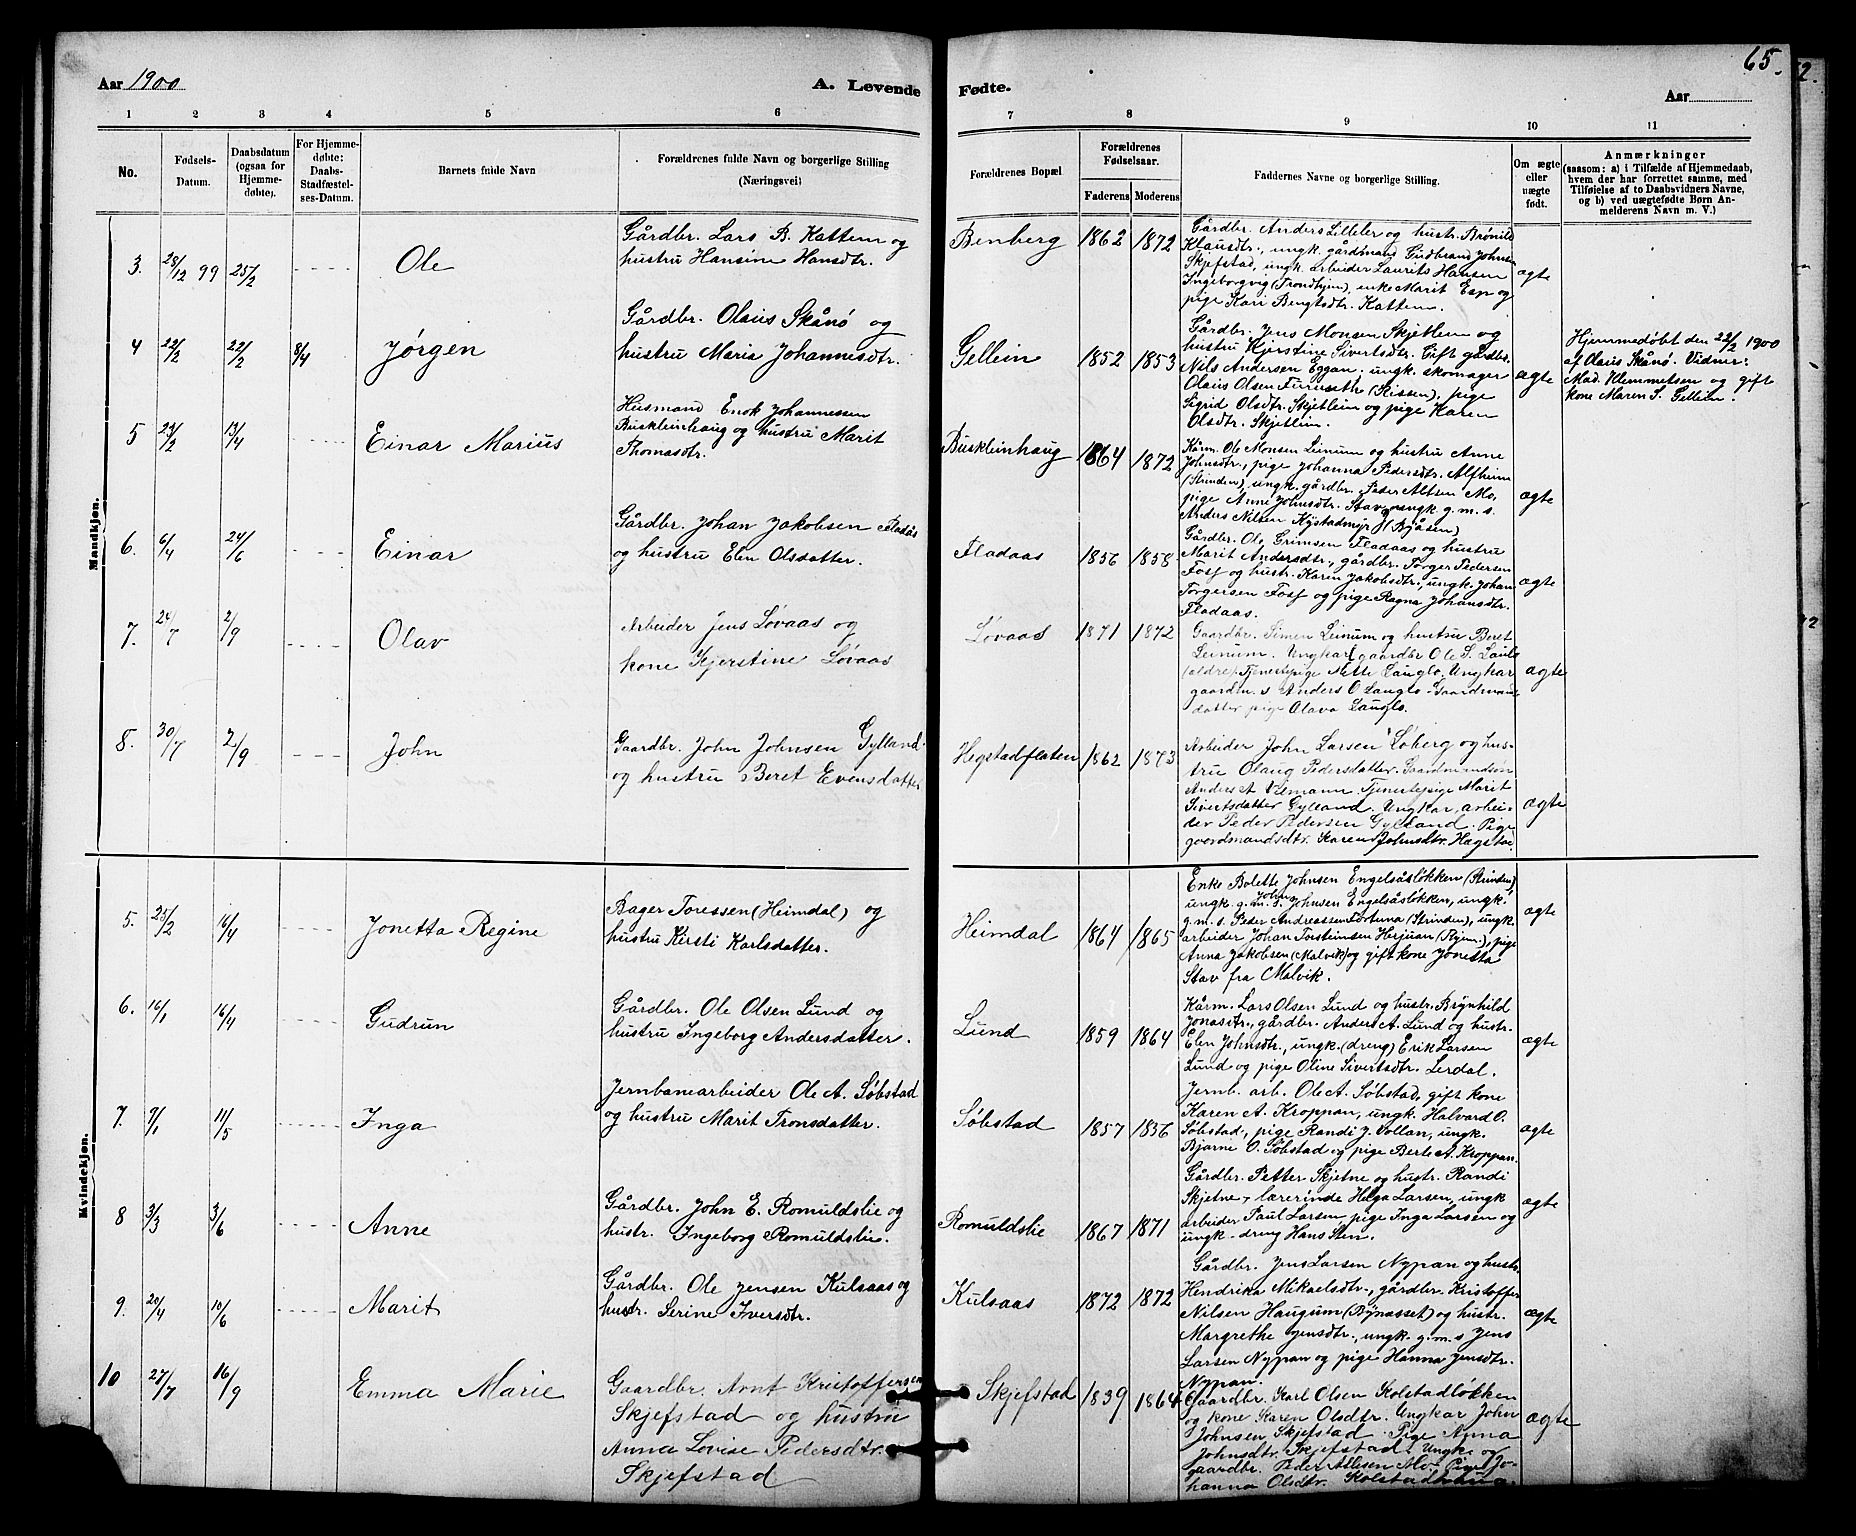 65.
Aar 1900
A. Levende
Fødte.
Aar
1 2 3 4 5 6 7 8 9 10 11
No.
Fødsels-
Datum.
Daabsdatum
(ogsaa for
Hjemme-
døbte).
For Hjemme-
døbte:
Daabs-
Stadfæstel-
ses-Datum.
Barnets fulde Navn
Forældrenes fulde Navn og borgerlige Stilling
(Næringsvei)
Forældrenes Bopæl
Forældrenes
Fødselsaar.
Faderens Moderens
Faddernes Navne og borgerlige Stilling.
Om ægte
eller
uægte
født.
Anmærkninger
(saasom: a) i Tilfælde af Hjemmedaab,
hvem der har forrettet samme, med
Tilføielse af to Daabsvidners Navne,
og b) ved uægtefødte Børn An-
melderens Navn m. V.)
Mandkjøn.
3. 28/12 99 25/2 Ole
Gårdbr. Lars B. Kattem og
hustru Hansine Hansdtr.
Benberg 1862 1872
Gårdbr. Anders Lilleler og hustr. Brønild
Klausdtr., ungk. gårdmans Gudbrand Johnsen
Skjefstad, ungk. arbeider Laurits Hansen
Ingeborgvig (Trondhjem), enke Marit Esp og
pige Kari Bengtsdtr. Kattem.
ægte
4 22/2 22/2 8/4 Jørgen
Gårdbr. Olaus Skånø og
hustru Maria Johannesdtr.
Gellein 1852 1853
Gårdbr. Jens Monsen Skjetlein og
hustru Kjerstine Sivertsdtr. Gift gårdbr.
Nils Andersen Eggan, ungk. skomager
Olaus Olsen Furuseth (Rissen), pige
Sigrid Olsdtr. Skjetlein og pige Karen
Olsdtr. Skjetlein.
ægte
Hjemmedøbt den 22/2 1900
af Olaus Skånø. Vidner:
Mad. Klemmetsen og gift
kone Maren S. Gellein.
5 24/2 13/4 Einar Marius
Husmand Enok Johannessen
Buskleinhaug og hustru Marit
Thomasdtr.
Buskleinhaug 1864 1872
Kårm. Ole Monsen Leinum og hustru Anne
Johnsdtr., pige Johanna Pedersdtr. Alfheim
(Strinden), ungk. gårdbr. Peder Atlsen Mo,
pige Anne Johnsdtr. Stav, ungk. g. m. s.
Anders Nilsen Kystadmyr (Byåsen)
ægte
6. 6/4 24/6 Einar
Gårdbr. Johan Jakobsen Fladås
og hustru Elen Olsdatter.
Fladaas 1856 1858
Gårdbr. Ole Grimsen Fladaas og hustru
Marit Andersdtr., gårdbr. Torger Pedersen
Foss og hustr. Karen Jakobsdtr., ungk. Johan
Torgersen Foss og pige Ragna Johansdtr.
Fladaas.
ægte
7. 24/7 2/9 Olav
Arbeider Jens Løvaas og
kone Kjerstine Løvaas
Løvaas 1871 1872
Gaardbr. Simen Leinum og hustru Beret
Leinum. Ungkar gaardbr Ole S. Laulo
(ældre). Tjenestepige Mette Lauglo. Ungkar
gaardm. s Anders O Lauglo. Gaardmans
datter pige Olava Lauglo.
ægte
8. 30/7 2/9 John
Gaardbr. John Johnsen Gylland
og hustru Beret Evensdatter
Hegstadflaten 1862 1873
Arbeider John Larsen Loberg og hus-
tru Olaug Pedersdatter. Gaardmandsøn
Anders A Vemann. Tjenestepige Marit
Sivertsdatter Gylland. Ungkar, arbei-
der Peder Pedersen Gylland. Pige
goordmandsdtr. Karen Johnsdtr. Hagstad
ægte
Kvindekjøn.
5. 25/2 16/4 Jonetta Regine
Bager Toressen (Heimdal) og
hustru Kirsti Karlsdatter.
Heimdal 1864 1865
Enke Bolette Johnsen Engelsåsløkken (Strinden),
ungk. g. m. s. Johnsen Engelsåsløkken, ungk.
g. m. s. Peder Andreassen Fortuna (Strinden), ungk.
arbeider Johan Torsteinsen Herjuan (Stjørn.), pige
Anna Jakobsen (Malvik) og gift kone Jonetta
Stav fra Malvik.
ægte
6. 16/1 16/4 Gudrun
Gårdbr. Ole Olsen Lund og
hustru Ingeborg Andersdatter.
Lund 1859 1864
Kårm. Lars Olsen Lund og hustr. Brynhild
Jonasdtr., gårdbr. Anders A. Lund og hustr.
Elen Johnsdtr., ungk. (dreng) Erik Larsen
Lund og pige Oline Sivertsdtr. Lerdal.
ægte
7. 7/1 11/5 Inga
Jernbanearbeider Ole A. Søbstad
og hustru Marit Tronsdatter.
Søbstad 1857 1856
Jernb. arb. Ole A. Søbstad, gift kone
Karen A. Kroppan, ungk. Halvard O.
Søbstad, pige Randi J. Vollan, ungk.
Bjarne O. Søbstad og pige Berle A. Kroppan.
ægte
8 3/3 3/6 Anne
Gårdbr. John E. Romuldslie og
hustr. Ingeborg Romuldslie.
Romuldslie 1867 1871
Gårdbr. Petter Skjetne og hustr. Randi
Skjetne, lærerinde Helga Larsen, ungk
arbeider Paul Larsen, pige Inga Larsen og
ungk. dreng Hans Sten.
ægte
9. 20/4 10/6 Marit
Gårdbr. Ole Jensen Kulsaas og
hustr. Serine Iversdtr.
Kulsaas 1872 1872
Gårdbr. Jens Larsen Nypan og hustr.
Hendrika Mikaelsdtr., gårdbr. Kristoffer
Nilsen Haugum (Bynæsset) og hustr.
Margrethe Jensdtr., ungk. g. m. s Jens
Larsen Nypan og pige Hanna Jensdtr.
Nypan.
ægte
10 27/7 16/9 Emma Marie
Gaardbr. Arnt Kristoffersen
Skjefstad og hustru
Anna Lovise Pedersdtr.
Skjefstad
Skjefstad 1839 1864
Gaardbr. Karl Olsen Kolstadløkken
og kone Karen Olsdtr. Ungkar John
Johnsen Skjefstad. Pige Anna
Johnsdtr Skjefstad. Ungk. og
gaardbr. Peder Atlesen Mo. Pige Jo-
hanna Olsdtr. Kolstad
ægte